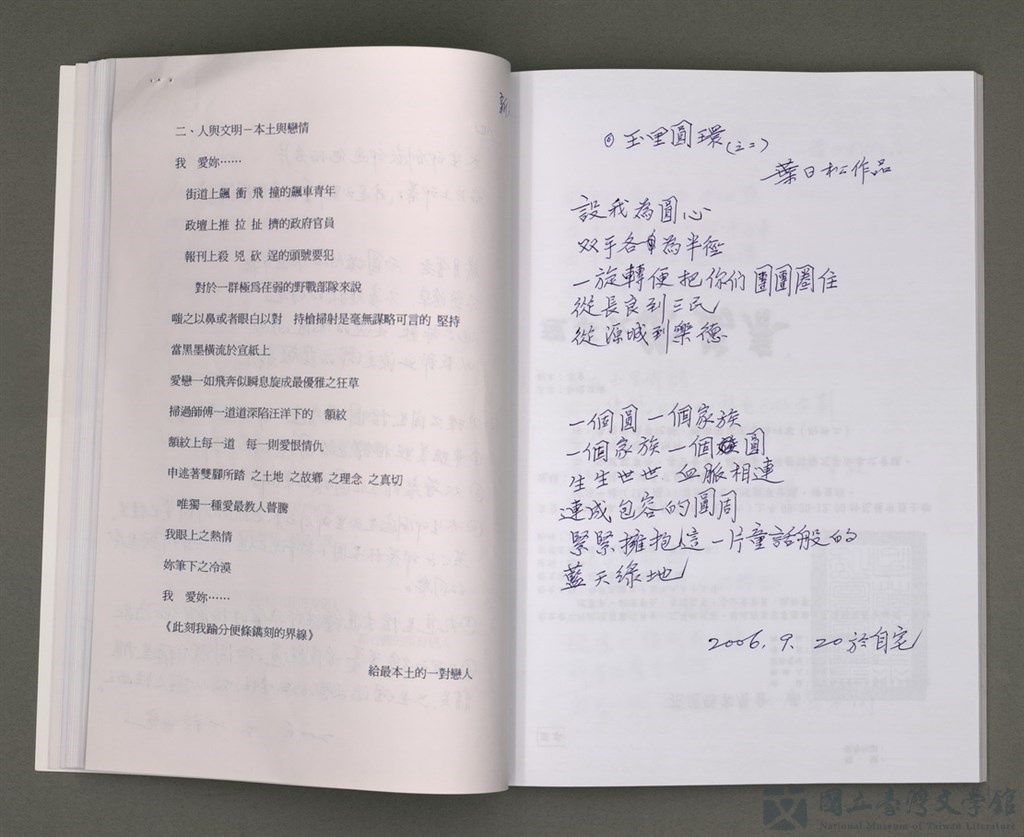 二、人與文明－本土與戀情
我　愛妳……
街道上飆 衝 飛 撞的飆車青年
政壇上推 拉 扯 擠的政府官員
報刊上殺 兇 砍 逞的頭號要犯
對於一群極為荏弱的野戰部隊來說
嗤之以鼻或者眼白以對　持槍掃射是毫無謀略可言的 堅持
當黑墨橫流於宣紙上
愛戀一如飛奔似瞬息旋成最優雅之狂草
掃過師傅一道道深陷汪洋下的　額紋
額紋上每一道　每一則愛恨情仇
申述著雙腳所踏 之土地 之故鄉 之理念 之真切
唯獨一種愛最教人瞽騰
我眼上之熱情
妳筆下之冷漠
我　愛妳……
《此刻我踰分便條鐫刻的界線》
給最本土的一對戀人
新
◎ 玉里圓環(之二)
葉日松作品
設我為圓心
双手各自為半徑
一旋轉便把你们團團圈住
從長良到三民
從源城到樂德
一個圓 一個家族
一個家族 一個圓
生生世世 血脈相連
連成包容的圓周
緊緊擁抱這一片童話般的
藍天綠地
2006. 9. 20 於自宅
國立臺灣文學館
National Museum of Taiwan Literature